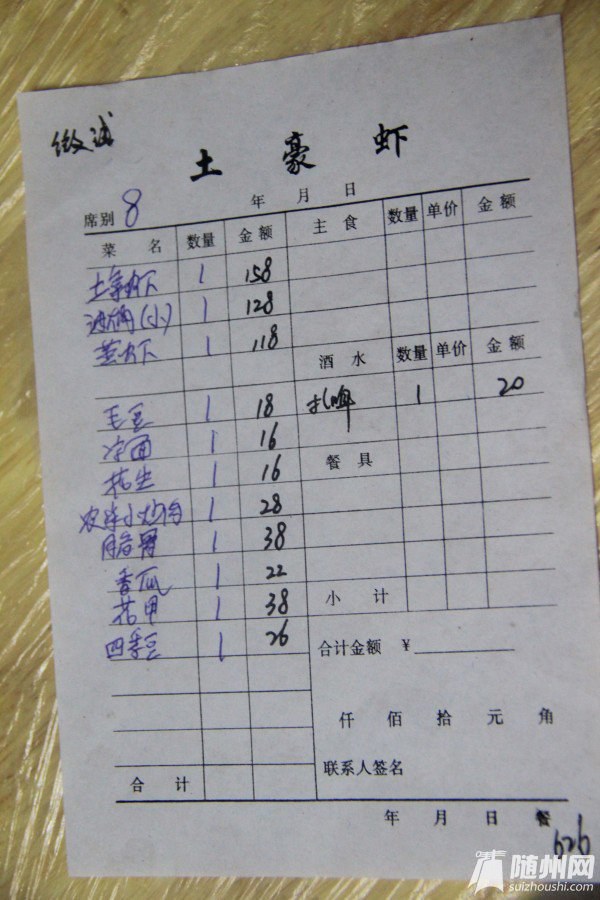 土豪虾
年 月 日
席别 8
菜 名 数量 金额 主食 数量 单价 金额
土豪虾 1 158
(小) 1 128
蒸虾 1 118
酒水 数量 单价 金额
毛豆 1 18 扎啤 1 20
1 16
花生 1 16 餐具
农家小炒肉 1 28
脆骨 1 38
香瓜 1 22
花甲 1 38 小计
四季豆 1 26
合计金额 ¥
仟 佰 拾 元 角
联系人签名
合计
年 月 日 餐
626
随州网
suizhoushi.com